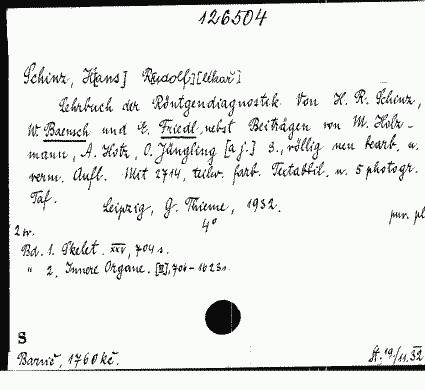 126504
Schinz, H[ans] R[udolf] [lékař]
Lehrbuch der Röntgendiagnostik. Von H. R. Schinz,
W. Baensch und E. Friedl, nebst Beiträgen von M. Holz-
mann, A. Hotz, O. Jüngling [a j.] 3., völlig neu bearb. u.
verm. Aufl. Mit 2714, teilw. farb. Textabbil. u. 5 photogr.
Taf. Leipzig, G. Thieme, 1932.
4°
2 sv.
Bd. 1. Skelet. XXV, 704 s.
" 2. Innere Organe. [II], 706-1623 s.
S
Barvič, 1760 kč.
19/11.32